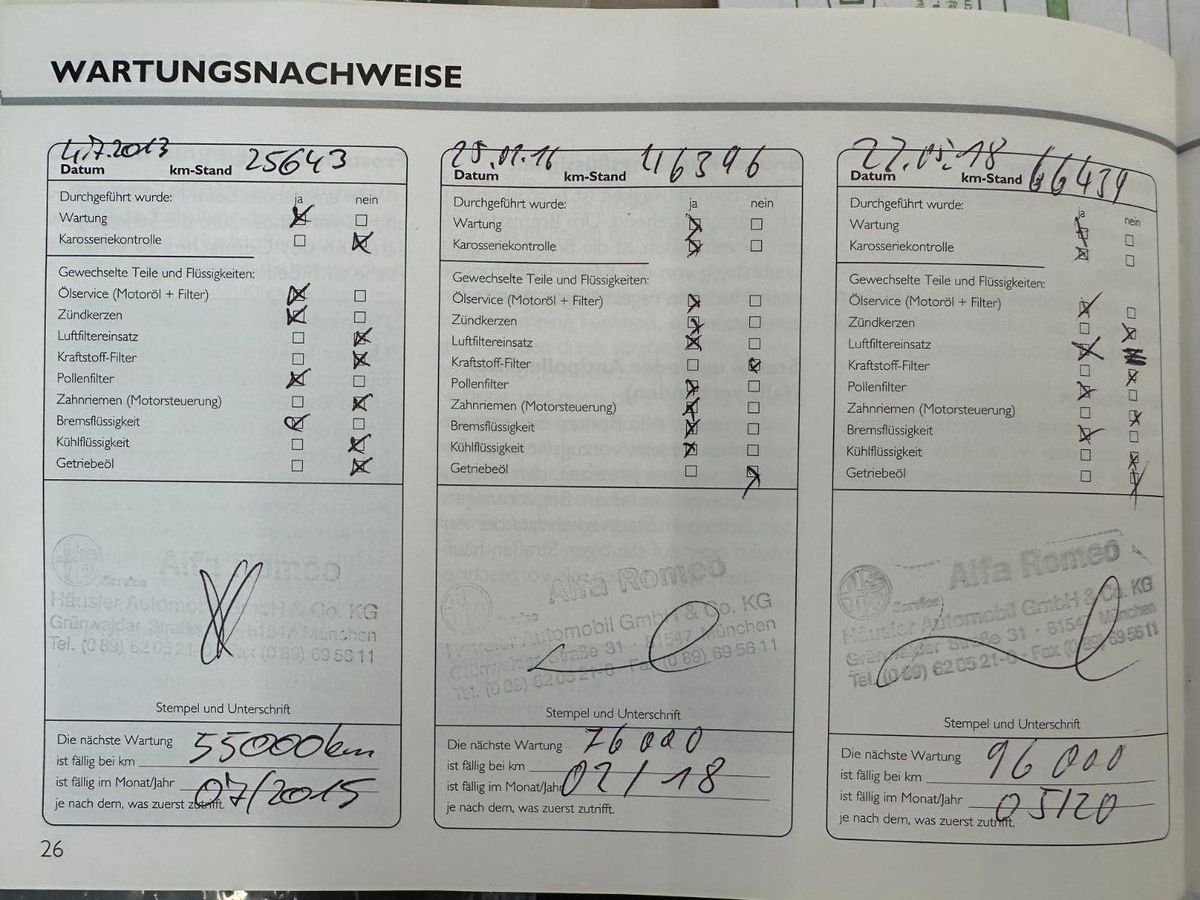 WARTUNGSNACHWEISE
4.7.2013 25643
Datum km-Stand
Durchgeführt wurde: ja nein
Wartung
Karosseriekontrolle
Gewechselte Teile und Flüssigkeiten:
Ölservice (Motoröl + Filter)
Zündkerzen
Luftfiltereinsatz
Kraftstoff-Filter
Pollenfilter
Zahnriemen (Motorsteuerung)
Bremsflüssigkeit
Kühlflüssigkeit
Getriebeöl
Alfa Romeo
Service
Häusler Automobil GmbH & Co. KG
Grünwalder Straße 81547 München
Tel. (0 89) 62 05 21-0 Fax (0 89) 69 56 11
Stempel und Unterschrift
Die nächste Wartung
ist fällig bei km 55000km
ist fällig im Monat/Jahr 07/2015
je nach dem, was zuerst zutrifft.
46396
Datum km-Stand
Durchgeführt wurde: ja nein
Wartung
Karosseriekontrolle
Gewechselte Teile und Flüssigkeiten:
Ölservice (Motoröl + Filter)
Zündkerzen
Luftfiltereinsatz
Kraftstoff-Filter
Pollenfilter
Zahnriemen (Motorsteuerung)
Bremsflüssigkeit
Kühlflüssigkeit
Getriebeöl
Alfa Romeo
Häusler Automobil GmbH & Co. KG
Grünwalder Straße 31 - 81547 München
Tel. (0 89) 62 05 21-0 - Fax (0 89) 69 56 11
Stempel und Unterschrift
Die nächste Wartung
ist fällig bei km 76000
ist fällig im Monat/Jahr 02/18
je nach dem, was zuerst zutrifft.
22.05.18 66439
Datum km-Stand
Durchgeführt wurde: ja nein
Wartung
Karosseriekontrolle
Gewechselte Teile und Flüssigkeiten:
Ölservice (Motoröl + Filter)
Zündkerzen
Luftfiltereinsatz
Kraftstoff-Filter
Pollenfilter
Zahnriemen (Motorsteuerung)
Bremsflüssigkeit
Kühlflüssigkeit
Getriebeöl
Alfa Romeo
Service
Häusler Automobil GmbH & Co. KG
Grünwalder Straße 31 - 81547 München
Tel. (0 89) 62 05 21-0 - Fax (0 89) 69 56 11
Stempel und Unterschrift
Die nächste Wartung
ist fällig bei km 96000
ist fällig im Monat/Jahr 05/20
je nach dem, was zuerst zutrifft.
26